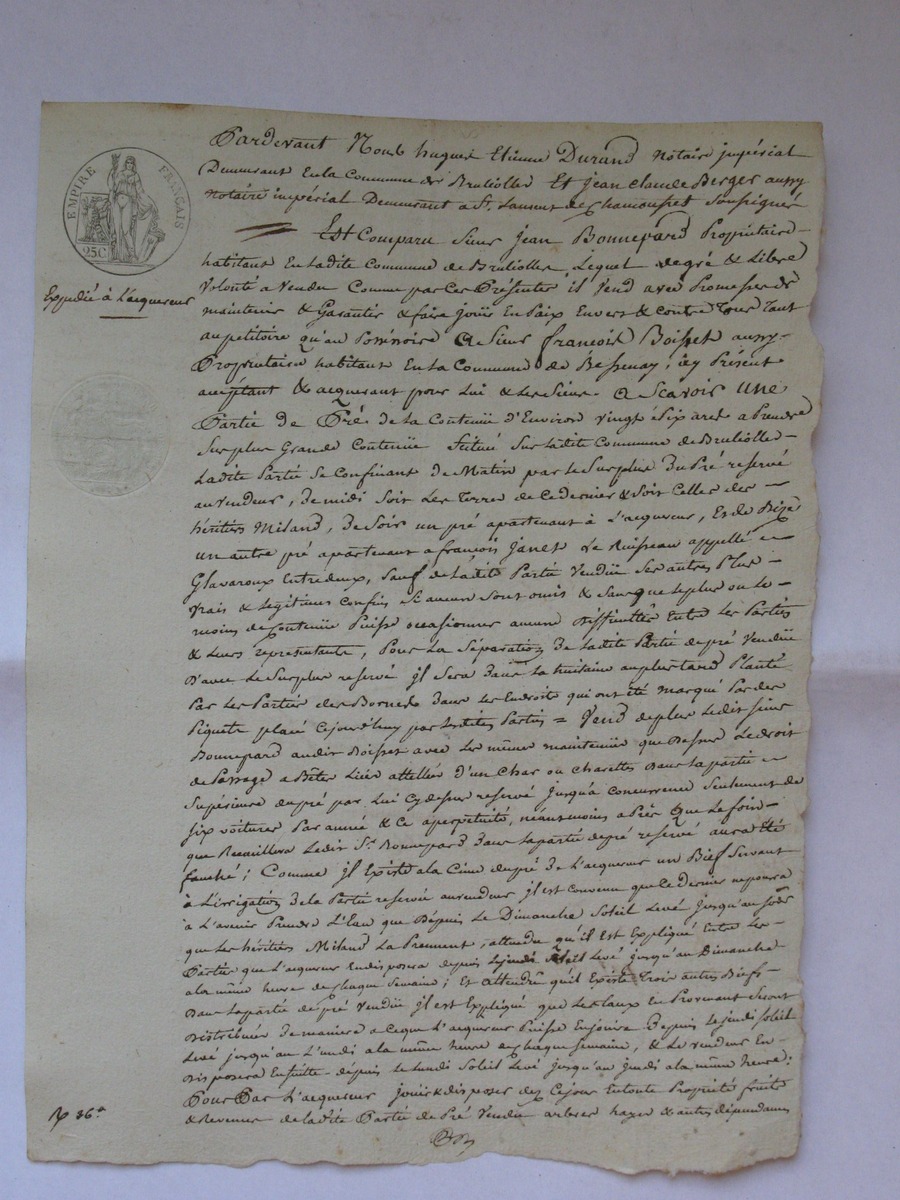 EMPIRE FRANÇAIS
25C
Expedié à L'acquereur
Pardevant Nous hugues Etienne Durand Notaire jmpérial
Demeurant En la Commune de Brulioller Et jean claude Berger aussy
Notaire impérial Demeurant a St. Laurent de Chamousset Soussigné
Est Comparu Sieur Jean Bonnepard Propriétaire
habitant En Ladite Commune de Brulioller, Lequel de gré & Libre
Volonté a Vendu Comme par Ces Présentes il Vend avec Promesse de
maintenir & Garantir & faire jouir En Paix Envers & Contre Tous Tant
au petitoire qu'au Possessoire a Sieur françois Boisset aussy
Propriétaire habitant En La Commune de Bessenay, icy Présent
acceptant & acquerant pour Lui & Les Siens. a Scavoir une
Partie de Pré de La Contenüe d'Environ vingt Six ares a Prendre
Sur plus Grande Contenüe Situé Sur Ladite Commune de Brulioller
Ladite Partie Se Confinant de Matin par Le Surplus Du Pré reservé
au vendeur, de midi Soit Les Terres de Ce dernier & Soit Celles des
héritiers Miland, de Soir un pré apartenant à L'acquereur, Et de Bize
un autre pré apartenant a françois Janet Le Ruisseau appellé
Glavaroux Entredeux, Sauf de Ladite Partie Vendüe Ses autres Plus
Vrais & Legitimes Confins Si aucuns Sont omis & Sans que Le plus ou Le
moins de Contenüe Puisse occasionner aucune difficultés Entre Les Parties
& Leurs représentants, Pour La Séparation De Ladite Partie de pré Vendüe
D'avec Le Surplus reservé jl Sera Dans La huitaine au plus tard Planté
Par Les Parties des Bornes Dans Les Endroits qui ont été marqué Par des
Piquets placé Cejourd'huy par Lesdites Parties = Vend de plus Ledit Sieur
Bonnepard audit Boisset avec Les même maintenüe que Dessus Le droit
de Passage a Bêtes Liées attellées d'un Char ou Charettes Dans La partie
Supérieure du pré par Lui Cy dessus reservé jusqu'à concurrence Seulement de
Six voitures Par année & Ce a perpétuité, néansmoins a Près Que Le foin
que Recuillera Ledit Sr. Bonnepard Dans La partie de pré reservé aura Eté
fauché; Comme jl Existe a La Cime du pré de L'acquereur un Bief Servant
à L'irrigation de La Partie reservée au vendeur jl est Convenu que Ce dernier ne poura
à L'avenir Prendre L'Eau que Depuis Le Dimanche Soleil Levé jusqu'au
que Les héritiers Miland La Prennent, attendu qu'il Est Expliqué Entre Les
Parties que L'acquereur En disposera depuis Le jeudi Soleil Levé jusqu'au Dimanche
a La même heure de Chaque Semaine; Et attendu qu'il Existe Trois autres Biefs
Dans La partie de pré Vendüe jl est Expliqué que Les Eaux En Provenant Seront
Distribuées De maniere a Ceque L'acquereur Puisse En jouir Depuis Le jeudi Soleil
Levé jusqu'au Lundi a La même heure de Chaque Semaine, & Le vendeur En
disposera Ensuitte depuis Le Lundi Soleil Levé jusqu'au jeudi a La même heure:
Pour Par L'acquereur jouir & disposer dez Cejour En toute Propriété fruits
& Revenus de Ladite Partie de Pré Vendüe arbres hayes & autres dépendances